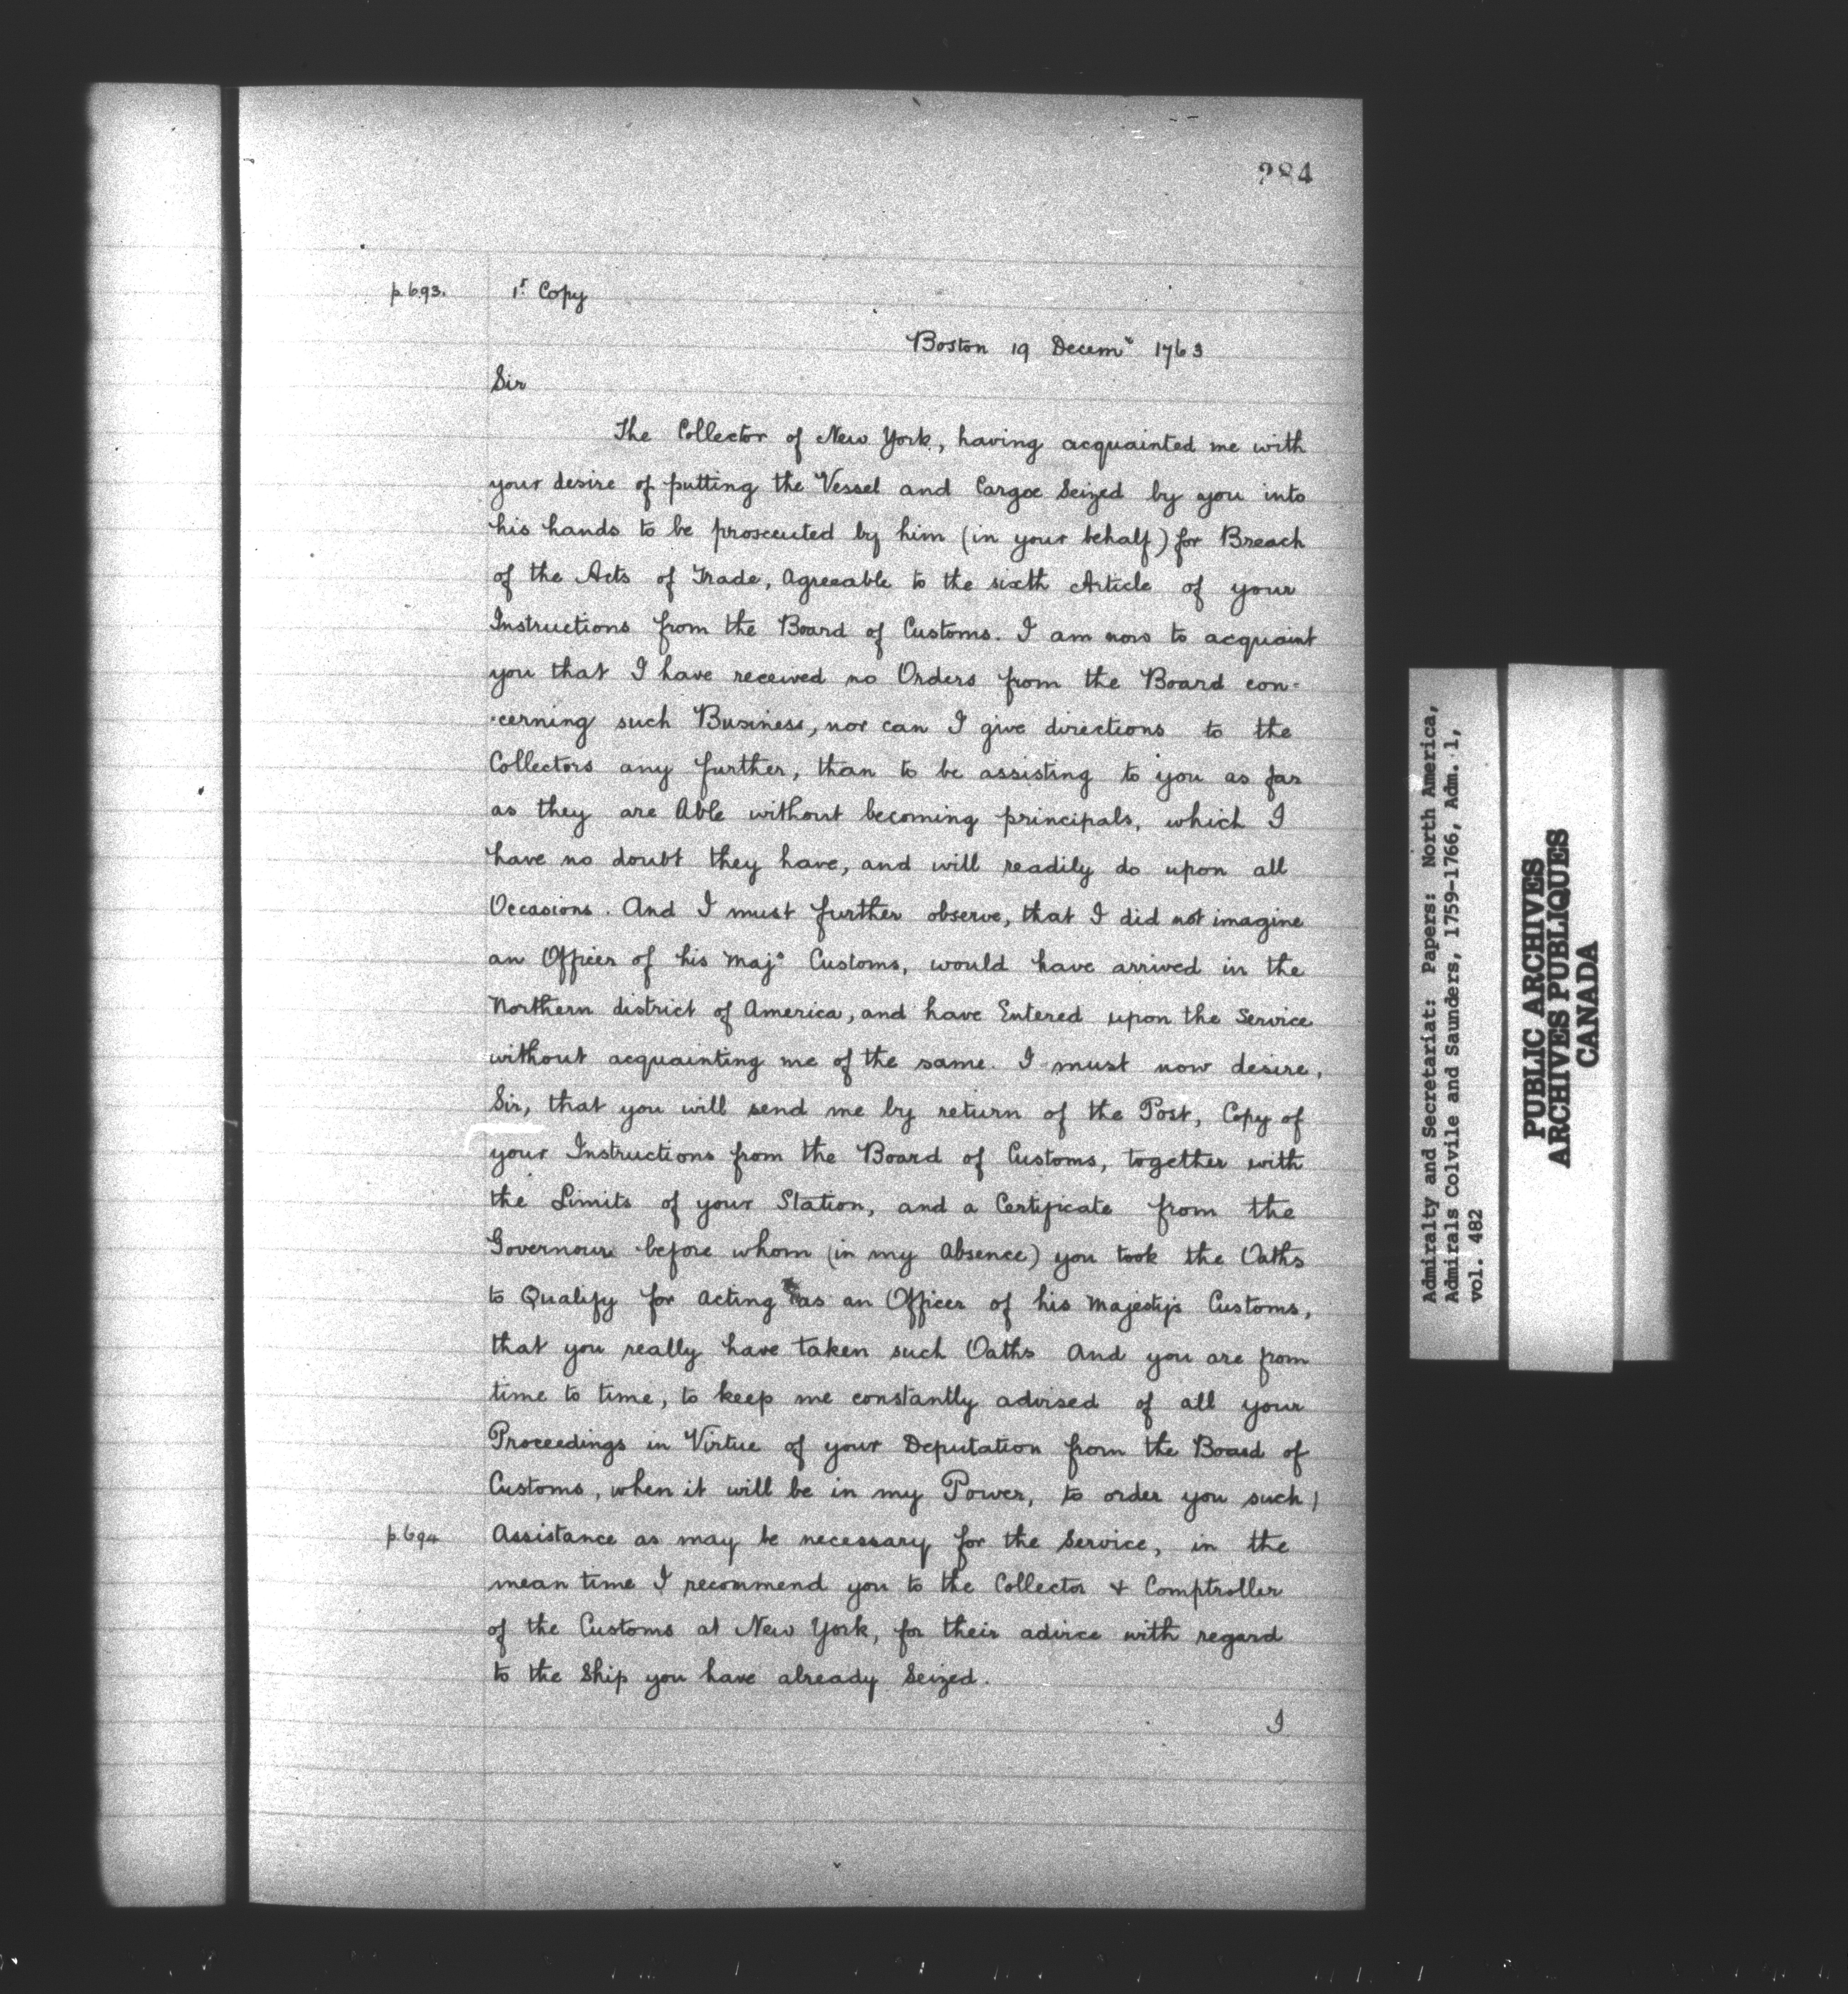 284
p. 693. 1st Copy
Boston 19 Decemr 1763
Sir
The Collector of New York, having acquainted me with
your desire of putting the Vessel and Cargoe Seized by you into
his hands to be prosecuted by him (in your behalf) for Breach
of the Acts of Trade, agreeable to the sixth Article of your
Instructions from the Board of Customs. I am now to acquaint
you that I have received no Orders from the Board con-
-cerning such Business, nor can I give directions to the
Collectors any further, than to be assisting to you as far
as they are Able without becoming principals, which I
have no doubt they have, and will readily do upon all
Occasions. And I must further observe, that I did not imagine
an Officer of his Majs Customs, would have arrived in the
Northern district of America, and have Entered upon the Service
without acquainting me of the same. I must now desire,
Sir, that you will send me by return of the Post, Copy of
your Instructions from the Board of Customs, together with
the Limits of your Station, and a Certificate from the
Governour before whom (in my Absence) you took the Oaths
to Qualify for acting as an Officer of his Majestys Customs,
that you really have taken such Oaths And you are from
time to time, to keep me constantly advised of all your
Proceedings in Virtue of your Deputation from the Board of
Customs, when it will be in my Power, to order you such /
p. 694 Assistance as may be necessary for the Service, in the
mean time I recommend you to the Collector & Comptroller
of the Customs at New York, for their advice with regard
to the Ship you have already Seized.
I
Admiralty and Secretariat: Papers: North America,
Admirals Colvile and Saunders, 1759-1766, Adm. 1,
vol. 482
PUBLIC ARCHIVES
ARCHIVES PUBLIQUES
CANADA